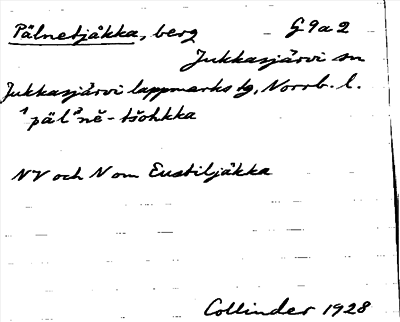 Pälnetjåkka, berg G 9 a 2
Jukkasjärvi sn
Jukkasjärvi lappmarks tg, Norrb. l.
¹päl²nĕ-tšohkka
NV och N om Eustiljåkka
Collinder 1928